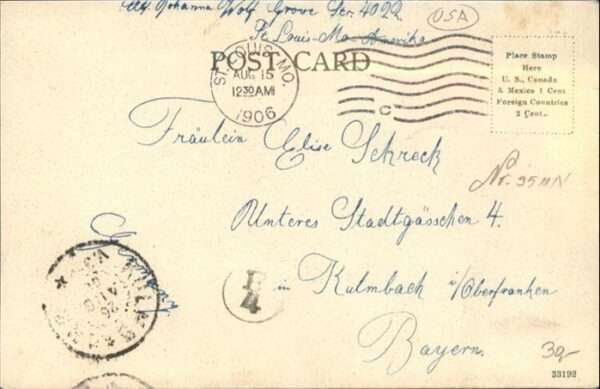 Johanna Wolf Grove Str. 4022
St Louis-Mo-Amerika
USA
POST CARD
ST. LOUIS, MO.
AUG 15
12 30 AM
1906
C
Place Stamp
Here
U. S., Canada
& Mexico 1 Cent
Foreign Countries
2 Cent.
Fräulein Elise Schreck
Unteres Stadtgässchen 4.
in Kulmbach i/Oberfranken
Bayern.
Germany
4
30-
33192